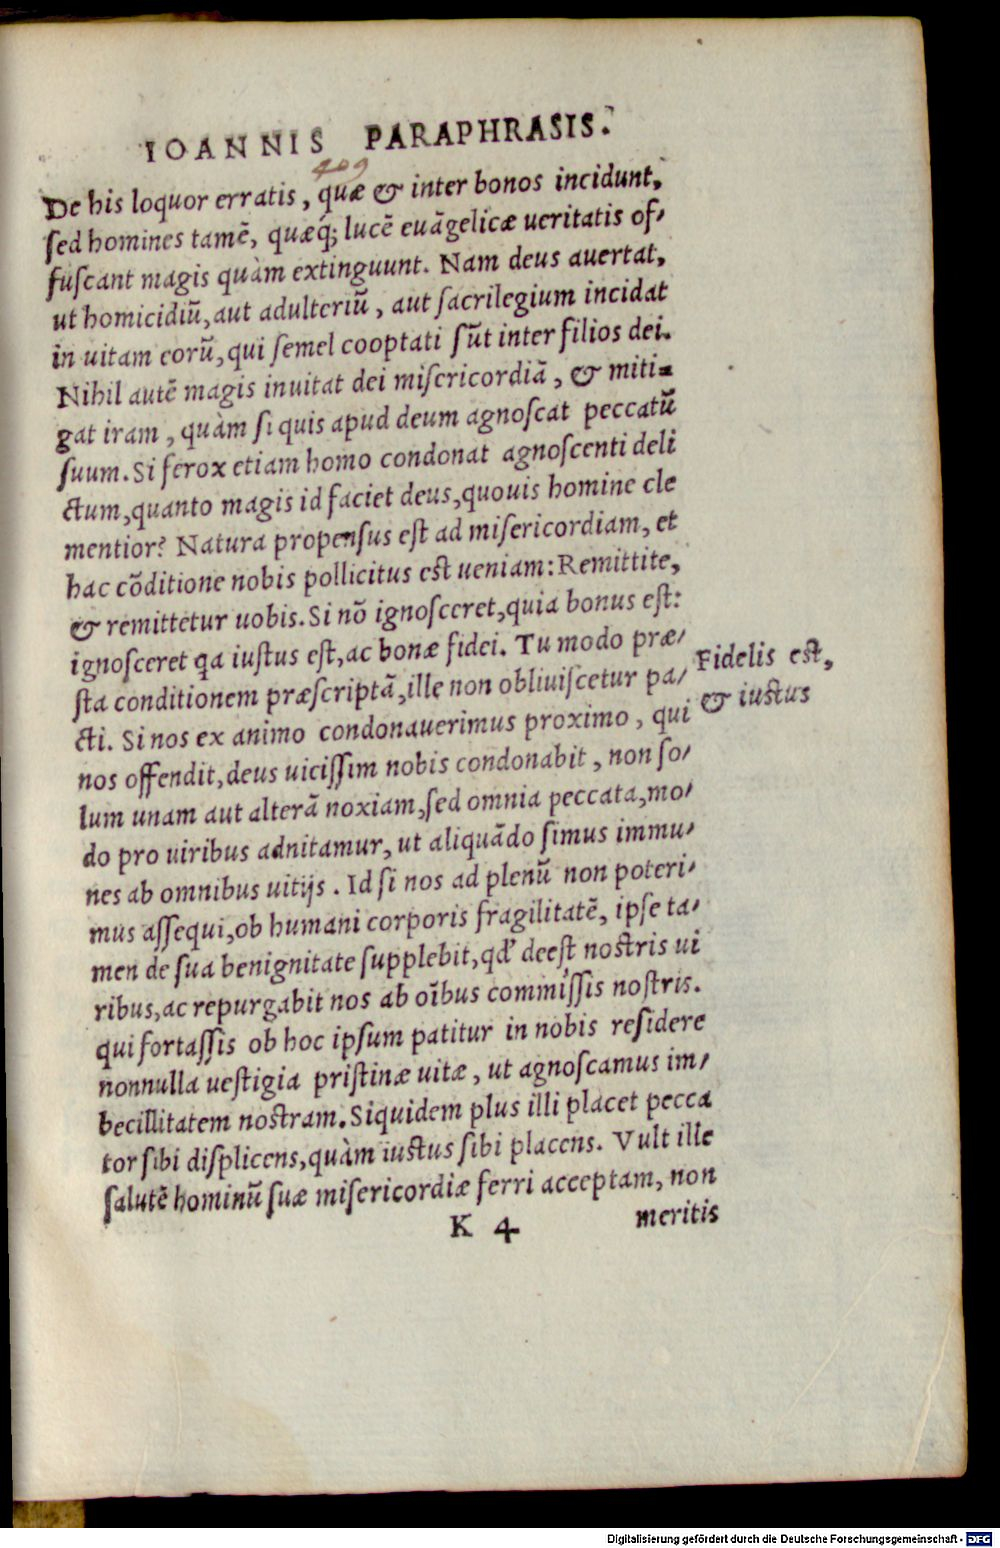 IOANNIS PARAPHRASIS.
409
De his loquor erratis, quæ & inter bonos incidunt,
ſed homines tamē, quæq́; lucē euāgelicæ ueritatis of⸗
fuſcant magis quàm extinguunt. Nam deus auertat,
ut homicidiū, aut adulteriū, aut ſacrilegium incidat
in uitam eorū, qui ſemel cooptati ſūt inter filios dei.
Nihil autē magis inuitat dei miſericordiā, & miti⸗
gat iram, quàm ſi quis apud deum agnoſcat peccatū
ſuum. Si ferox etiam homo condonat agnoſcenti deli
ctum, quanto magis id faciet deus, quouis homine cle
mentior? Natura propenſus eſt ad miſericordiam, et
hac cōditione nobis pollicitus eſt ueniam: Remittite,
& remittetur uobis. Si nō ignoſceret, quia bonus eſt:
ignoſceret qa iuſtus eſt, ac bonæ fidei. Tu modo præ⸗
ſta conditionem præſcriptā, ille non obliuiſcetur pa⸗
cti. Si nos ex animo condonauerimus proximo, qui
nos offendit, deus uiciſſim nobis condonabit, non ſo⸗
lum unam aut alterā noxiam, ſed omnia peccata, mo⸗
do pro uiribus adnitamur, ut aliquādo ſimus immu⸗
nes ab omnibus uitijs. Id ſi nos ad plenū non poteri⸗
mus aſſequi, ob humani corporis fragilitatē, ipſe ta⸗
men de ſua benignitate ſupplebit, qd' deeſt noſtris ui
ribus, ac repurgabit nos ab oībus commiſſis noſtris.
qui fortaſſis ob hoc ipſum patitur in nobis reſidere
nonnulla ueſtigia priſtinæ uitæ, ut agnoſcamus im⸗
becillitatem noſtram. Siquidem plus illi placet pecca
tor ſibi diſplicens, quàm iuſtus ſibi placens. Vult ille
ſalutē hominū ſuæ miſericordiæ ferri acceptam, non
K 4 meritis
Fidelis eſt,
& iuſtus
Digitalisierung gefördert durch die Deutsche Forschungsgemeinschaft - DFG